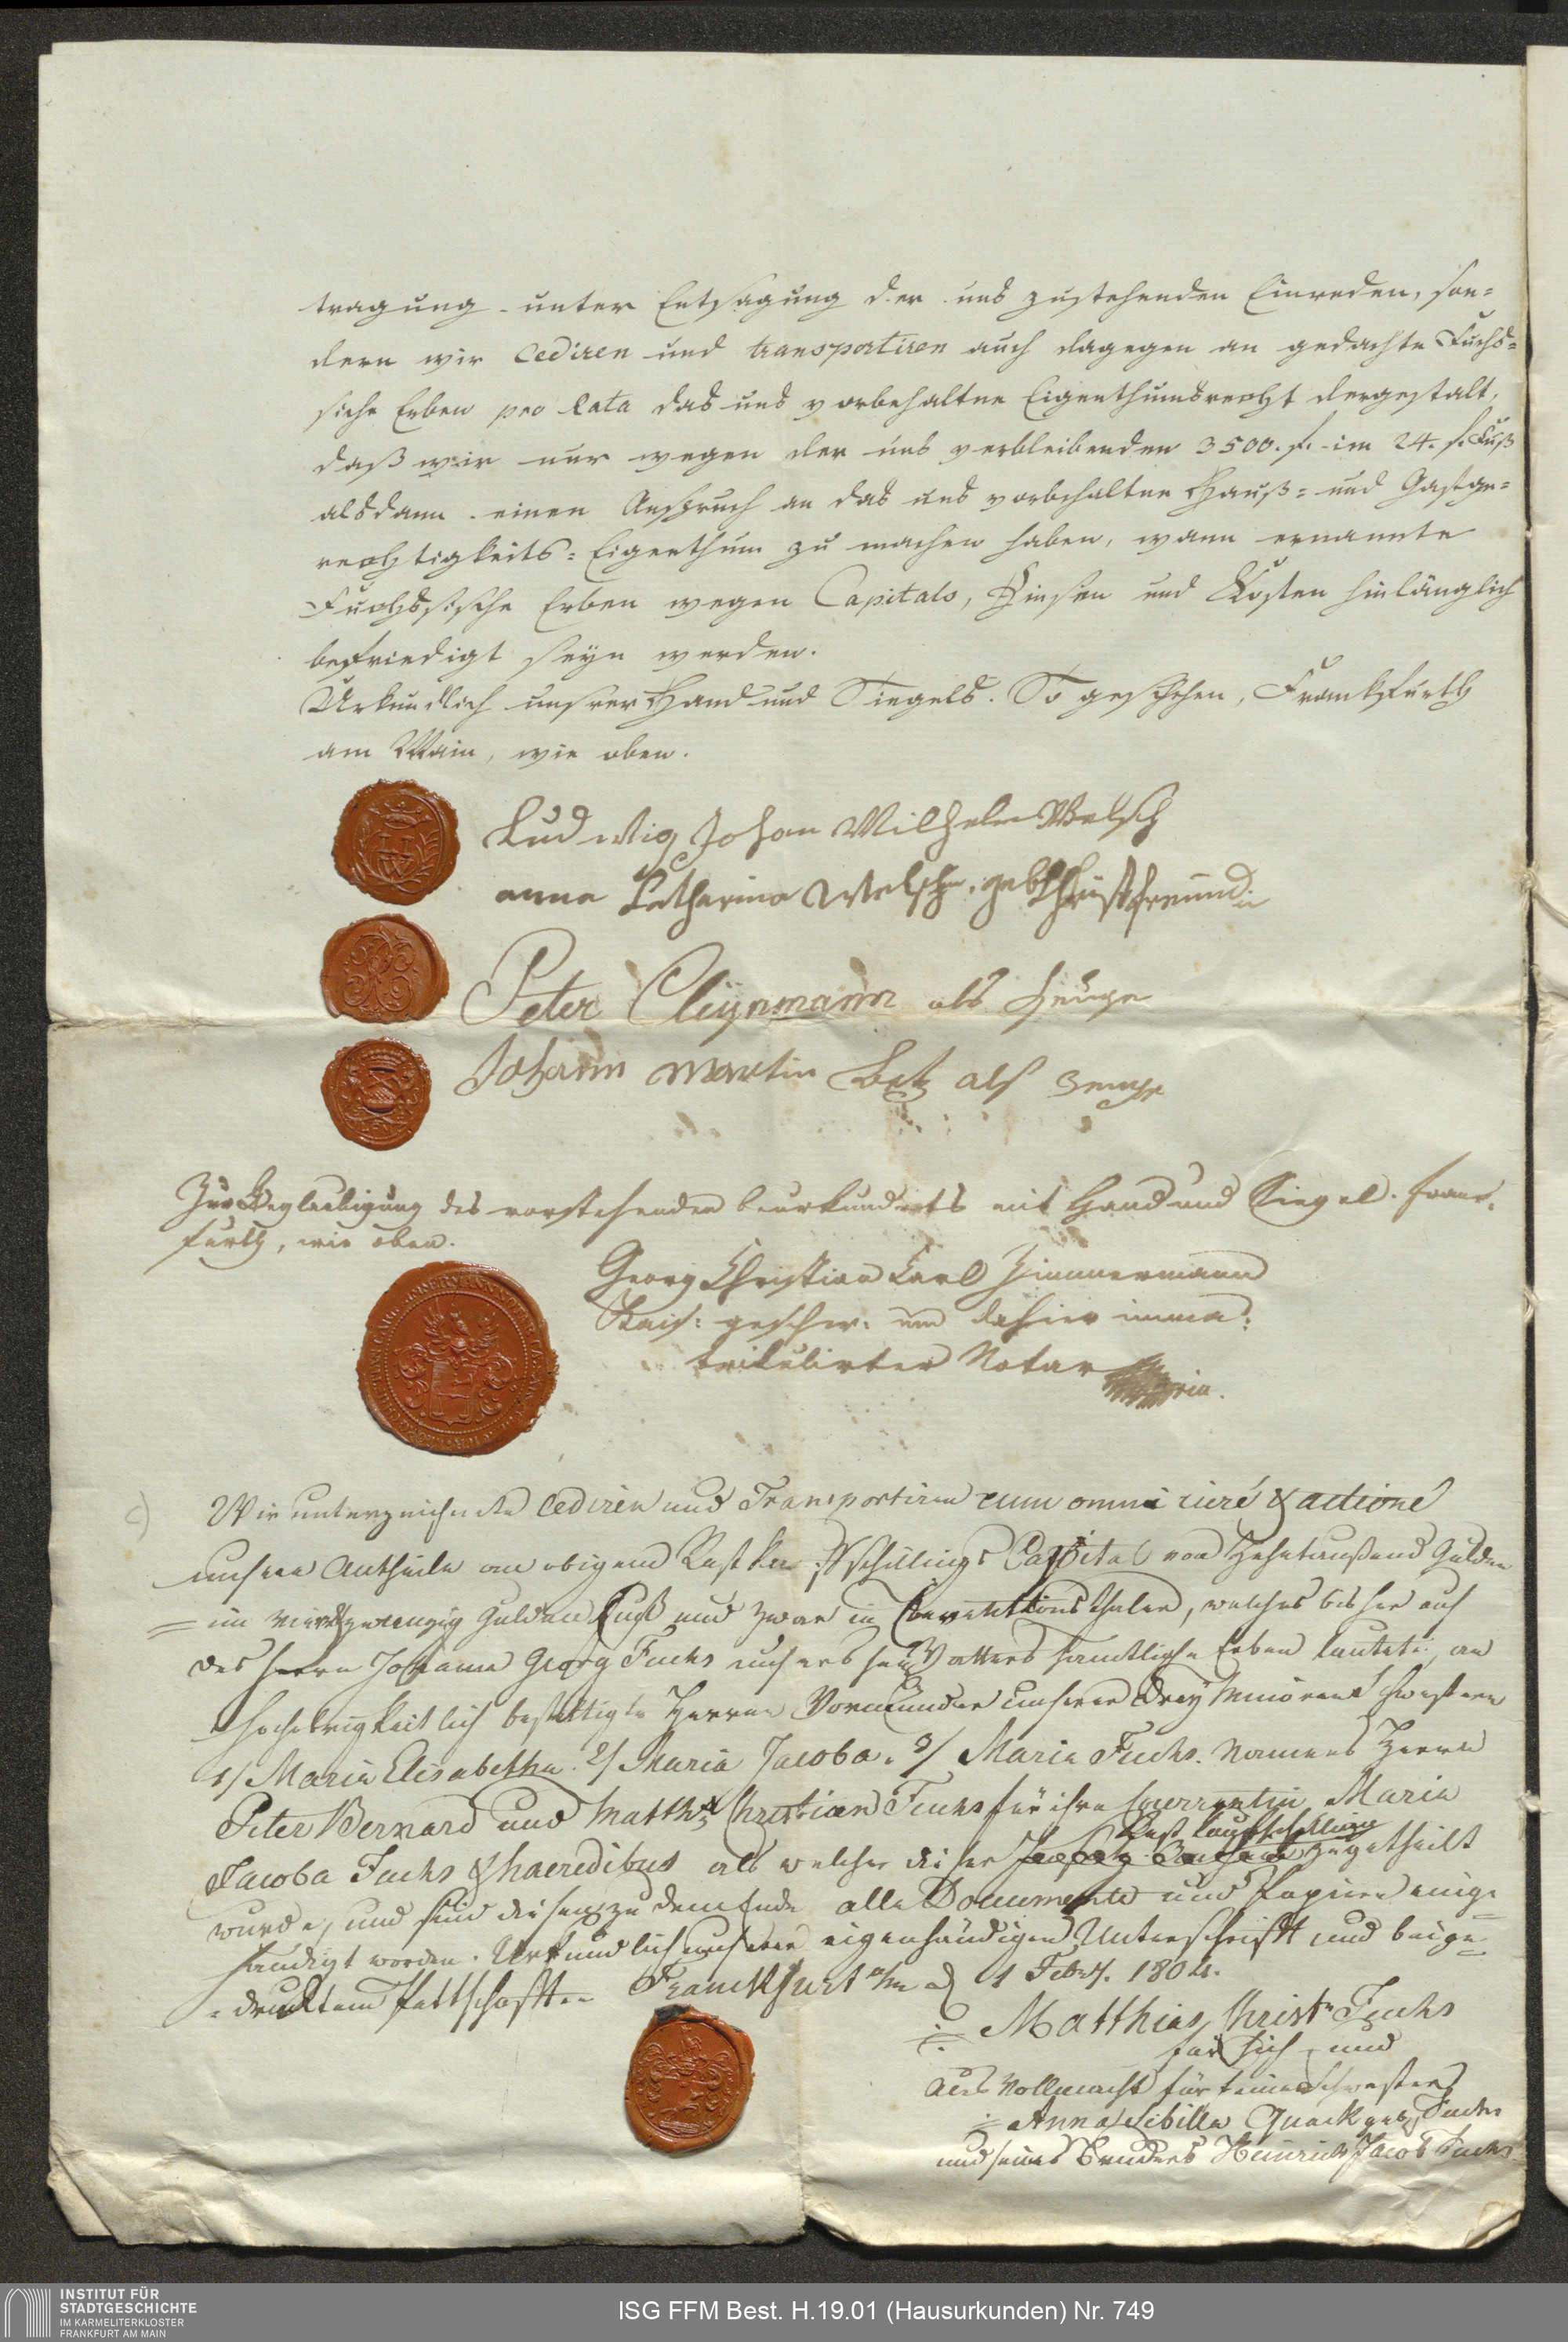 tragung unter Entsagung der uns zustehenden Einreden, son=
dern wir cediren und transportiren auch dagegen an gedachte Fuchs=
sische Erben pro Rata das uns vorbehaltne Eigenthumsrecht dergestalt,
daß wir nur wegen der uns verbleibenden 3500. f. im 24. f. Fuß
alsdann einen Anspruch an das uns vorbehaltne Hauß= und Gastge=
rechtigkeits=Eigenthum zu machen haben, wann ernannte
Fuchsische Erben wegen Capitals, Zinsen und Kosten hinlänglich
befriedigt seyn werden.
Urkundlich unsrer Hand und Siegels. So geschehen, Frankfurth
am Main, wie oben.
Ludwig Johan Wilhelm Welsch
anna Catharina Welschin, geb. Christfreundin
Peter Cleynmann als Zeuge
Johann Martin Betz als Zeuge
Zur Beglaubigung des vorstehenden beurkundets mit Hand und Siegel. Franc=
furth, wie oben.
Georg Christian Carl Zimmermann
Kais: geschw. und dahier imma=
trikulirter Notar
c) Wir unterzeichnete cediren und Transportiren cum omni iure & actione
unsere Antheile an obigem Rest Kaufschillings Capital von Zehntaußend Gulden
im vier & zwanzig Gulden Fuß und zwar in Conventions thaler, welches bis her auf
des Herrn Johann Georg Fuchs unsers seel. Vatters samtliche Erben lautete, an
hochobrigkeitlich bestettigte Herren Vormünder unserer Drey Minorenē Schwestern
1/ Maria Elisabetha. 2/ Maria Jacoba. 3/ Maria Fuchs. Namens Herrn
Peter Bernard und Matths Christian Fuchs für ihre Currentin Maria
Rest Kaufschilling
Jacoba Fuchs & haeredibus als welcher dieser zugetheilt
wurde, und sind diesen zu dem Ende alle Documente und Papiere einge=
händigt worden. Urkundlich unserer eigenhändigen Unterschrift und beige=
=drucktem Pettschafften Franckfurt a/m d 1 Febr. 1804.
Matthias Christn Fuchs
für sich, und
aus Vollmacht für seine Schwester
Anna Sibilla Quack geb. Fuchs
und seines Bruders Heinrich Jacob Fuchs.
INSTITUT FÜR
STADTGESCHICHTE
IM KARMELITERKLOSTER
FRANKFURT AM MAIN
ISG FFM Best. H.19.01 (Hausurkunden) Nr. 749